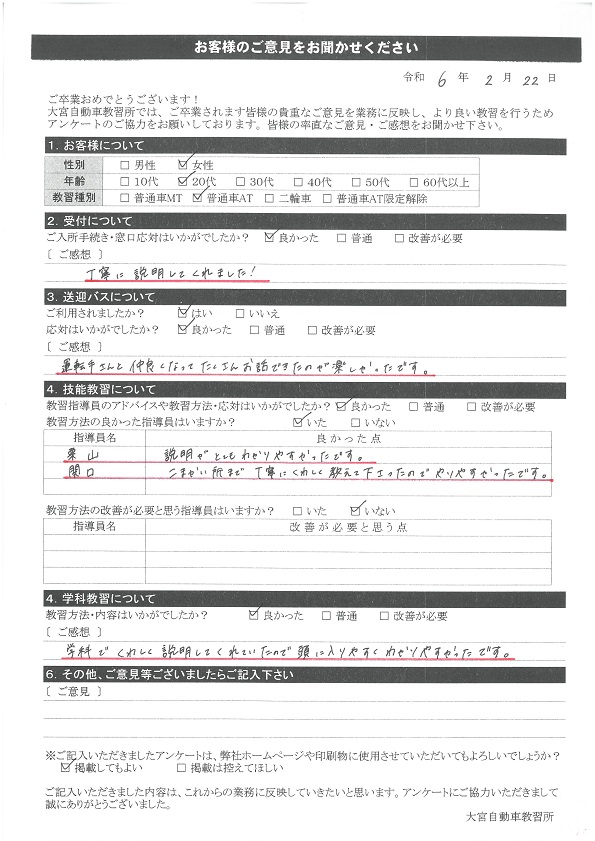 お客様のご意見をお聞かせください
令和 6 年 2 月 22 日
ご卒業おめでとうございます!
大宮自動車教習所では、ご卒業されます皆様の貴重なご意見を業務に反映し、より良い教習を行うため
アンケートのご協力をお願いしております。皆様の率直なご意見・ご感想をお聞かせ下さい。
1. お客様について
性別 □男性 ☑女性
年齢 □10代 ☑20代 □30代 □40代 □50代 □60代以上
教習種別 □普通車MT ☑普通車AT □二輪車 □普通車AT限定解除
2. 受付について
ご入所手続き・窓口応対はいかがでしたか? ☑良かった □普通 □改善が必要
〔 ご感想 〕
丁寧に説明してくれました!
3. 送迎バスについて
ご利用されましたか? ☑はい □いいえ
応対はいかがでしたか? ☑良かった □普通 □改善が必要
〔 ご感想 〕
運転手さんと仲良くなってたくさんお話できたのが楽しかったです。
4. 技能教習について
教習指導員のアドバイスや教習方法・応対はいかがでしたか? ☑良かった □普通 □改善が必要
教習方法の良かった指導員はいますか? ☑いた □いない
指導員名 良かった点
栗山 説明がとてもわかりやすかったです。
関口 こまかい所まで丁寧にくわしく教えて下さったのでやりやすかったです。
教習方法の改善が必要と思う指導員はいますか? □いた ☑いない
指導員名 改善が必要と思う点
4. 学科教習について
教習方法・内容はいかがでしたか? ☑良かった □普通 □改善が必要
〔 ご感想 〕
学科でくわしく説明してくれていたので頭に入りやすくわかりやすかったです。
6. その他、ご意見等ございましたらご記入下さい
〔 ご意見 〕
※ご記入いただきましたアンケートは、弊社ホームページや印刷物に使用させていただいてもよろしいでしょうか?
☑掲載してもよい □掲載は控えてほしい
ご記入いただきました内容は、これからの業務に反映していきたいと思います。アンケートにご協力いただきまして
誠にありがとうございました。
大宮自動車教習所